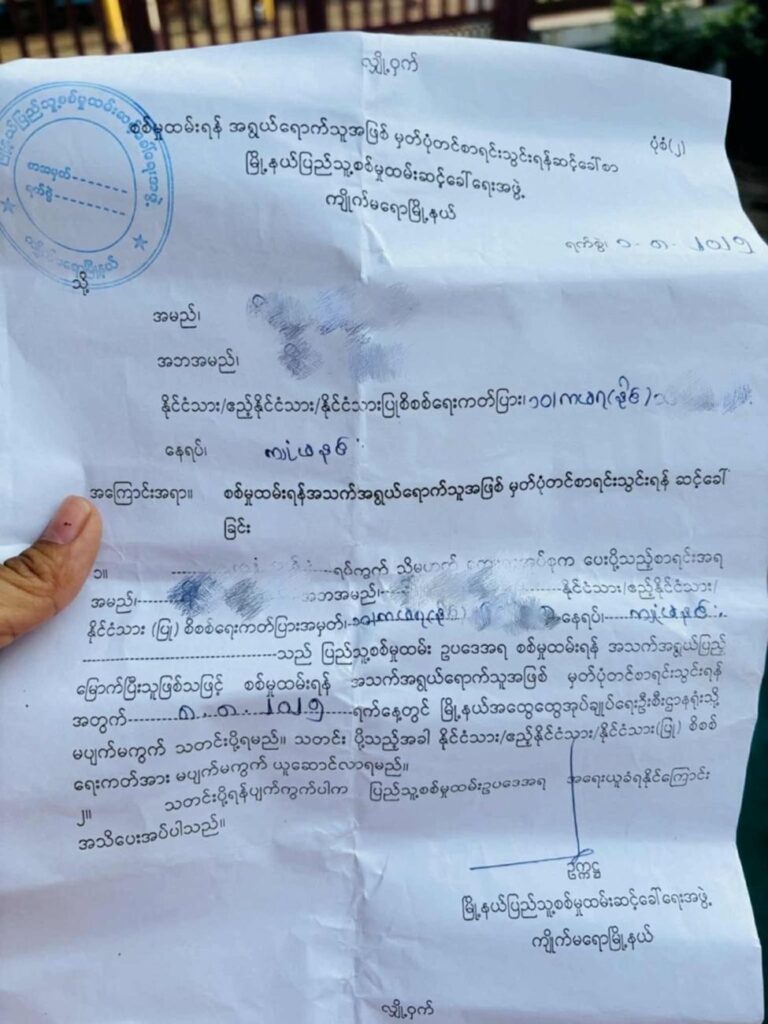 လျှို့ဝှက်
ပုံစံ(၂)
စစ်မှုထမ်းရန် အရွယ်ရောက်သူအဖြစ် မှတ်ပုံတင်စာရင်းသွင်းရန်ဆင့်ခေါ်စာ
မြို့နယ်ပြည်သူ့စစ်မှုထမ်းဆင့်ခေါ်ရေးအဖွဲ့
ကျိုက်မရောမြို့နယ်
စာအမှတ်
ရက်စွဲ
ကျိုက်မရောမြို့နယ်
ရက်စွဲ၊ ၁ . ၈ . ၂၀၂၅
သို့
အမည်၊
အဘအမည်၊
နိုင်ငံသား/ဧည့်နိုင်ငံသား/နိုင်ငံသားပြုစိစစ်ရေးကတ်ပြား၊ ၁၀/ကမရ(နိုင်)
နေရပ်၊
အကြောင်းအရာ။ စစ်မှုထမ်းရန်အသက်အရွယ်ရောက်သူအဖြစ် မှတ်ပုံတင်စာရင်းသွင်းရန် ဆင့်ခေါ်
ခြင်း
၁။ ရပ်ကွက် သို့မဟုတ် ကျေးရွာအုပ်စုက ပေးပို့သည့်စာရင်းအရ
အမည်၊ အဘအမည်၊ နိုင်ငံသား/ဧည့်နိုင်ငံသား/
နိုင်ငံသား (ပြု) စိစစ်ရေးကတ်ပြားအမှတ်၊ ၁၀/ကမရ(နိုင်) နေရပ်၊
သည် ပြည်သူ့စစ်မှုထမ်း ဥပဒေအရ စစ်မှုထမ်းရန် အသက်အရွယ်ပြည့်
မြောက်ပြီးသူဖြစ်သဖြင့် စစ်မှုထမ်းရန် အသက်အရွယ်ရောက်သူအဖြစ် မှတ်ပုံတင်စာရင်းသွင်းရန်
အတွက် ၈ . ၈ . ၂၀၂၅ ရက်နေ့တွင် မြို့နယ်အထွေထွေအုပ်ချုပ်ရေးဦးစီးဌာနရုံးသို့
မပျက်မကွက် သတင်းပို့ရမည်။ သတင်း ပို့သည့်အခါ နိုင်ငံသား/ဧည့်နိုင်ငံသား/နိုင်ငံသား(ပြု) စိစစ်
ရေးကတ်အား မပျက်မကွက် ယူဆောင်လာရမည်။
၂။ သတင်းပို့ရန်ပျက်ကွက်ပါက ပြည်သူ့စစ်မှုထမ်းဥပဒေအရ အရေးယူခံရနိုင်ကြောင်း
အသိပေးအပ်ပါသည်။
ဥက္ကဋ္ဌ
မြို့နယ်ပြည်သူ့စစ်မှုထမ်းဆင့်ခေါ်ရေးအဖွဲ့
ကျိုက်မရောမြို့နယ်
လျှို့ဝှက်